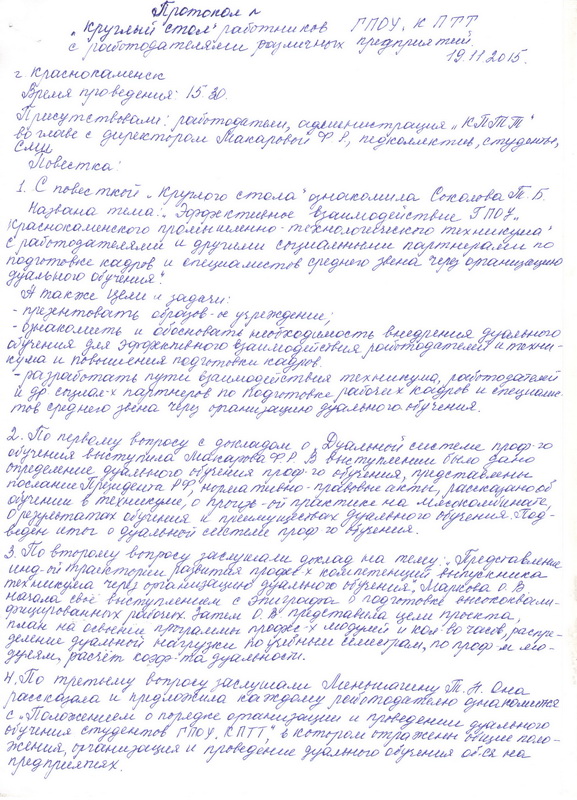 Протокол №
„Круглый стол" работников ГПОУ „КПТТ
с работодателями различных предприятий.
19.11.2015.
г. Краснокаменск
Время проведения: 15 30.
Присутствовали: работодатели, администрация „КПТТ"
во главе с директором Макаровой Ф Р, педколлектив, студенты,
СМИ
Повестка:
1. С повесткой „Круглого стола" ознакомила Соколова Т. Б.
Названа тема: „Эффективное взаимодействие ГПОУ „
Краснокаменского промышленно-технологического техникума"
с работодателями и другими социальными партнерами по
подготовке кадров и специалистов среднего звена через организацию
дуального обучения".
А также цели и задачи:
- презентовать образов-е учреждение;
- ознакомить и обосновать необходимость внедрения дуального
обучения для эффективного взаимодействия работодателей и техни-
кума и повышения подготовки кадров.
- разработать пути взаимодействия техникума, работодателей
и др. социал-х партнеров по подготовке рабочих кадров и специалис-
тов среднего звена через организацию дуального обучения.
2. По первому вопросу с докладом о „Дуальной системе проф-го
обучения выступила Макарова Ф Р. В выступлении было дано
определение дуального обучения проф-го обучения, представлены
послание Президента РФ, нормативно-правовые акты, рассказано об
обучении в техникуме, о произв-ой практике на мясокомбинате
о результатах обучения и преимуществах дуального обучения. Под-
веден итог о дуальной системе проф-го обучения.
3. По второму вопросу заслушали доклад на тему: „Представление
инд-ой траектории развития профес-х компетенций выпускника
техникума через организацию дуального обучения". Маркова О. В.
начала своё выступление с эпиграфа о подготовке высококвали-
фицированных рабочих. Затем О. В. представила цели проекта,
план на освоении программы професс-х модулей и кол-во часов, распре-
деление дуальной нагрузки по учебным семестрам, по проф-м мо-
дулям, расчёт коэф-та дуальности.
4. По третьему вопросу заслушали Меньшагину Т. Н. Она
рассказала и предложила каждому работодателю ознакомится
с „Положением о порядке организации и проведении дуального
обучения студентов ГПОУ „КПТТ", в котором отражены общие поло-
жения, организация и проведение дуального обучения об-ся на
предприятиях.